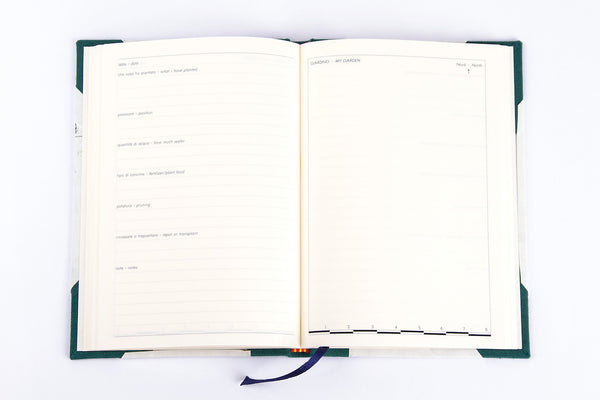 data - date
che cosa ho piantato - what I have planted
posizione - position
quantità di acqua - how much water
tipo di concime - fertiliser/plant food
potatura - pruning
rinvasare o trapiantare - repot or transplant
note - notes
GIARDINO - MY GARDEN
Nord - North
1 2 3 4 5 6 7 8